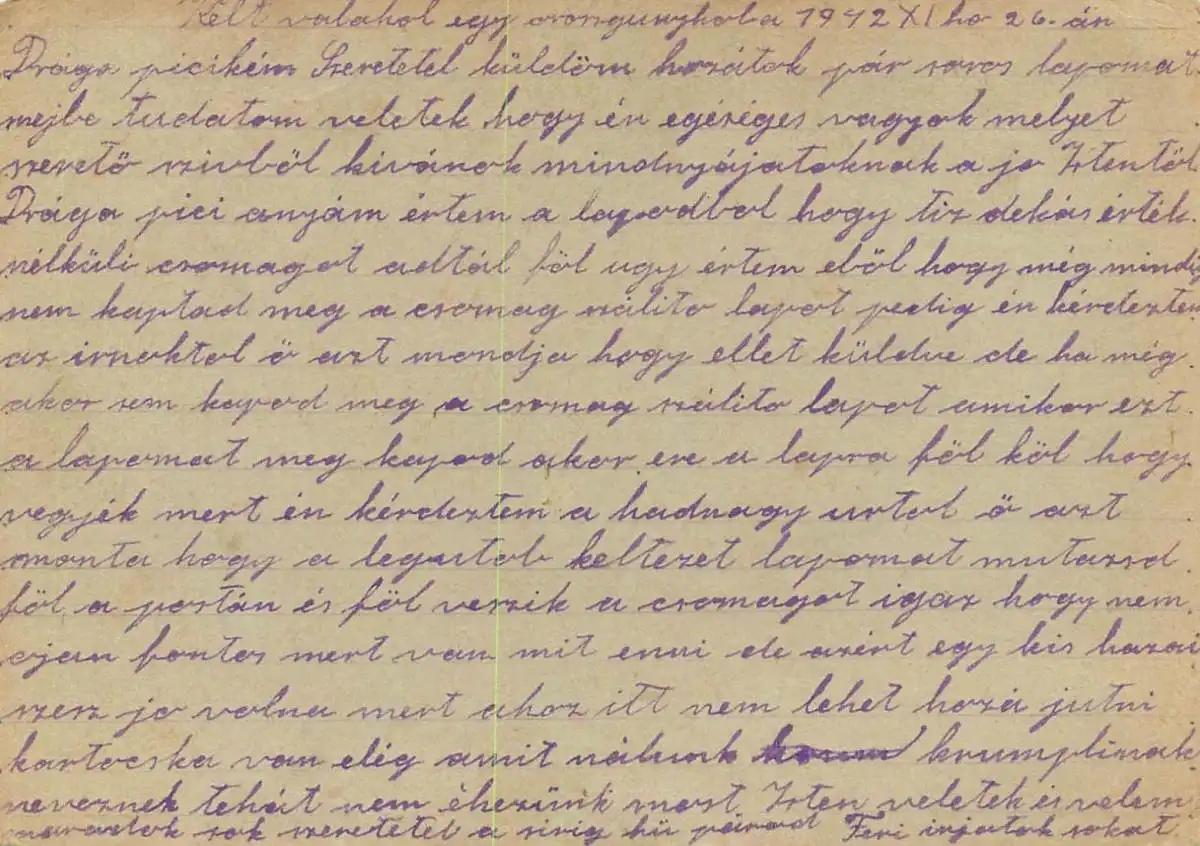 Kelt valahol egy oroszgunyhoba 1942 XI ho 26.-án
Drága picikém Szeretetel küldöm hozátok pár soros lapomat
mejbe tudatom veletek hogy én egéséges vagyok melyet
szerető szivböl kivánok mindnyájatoknak a jo Istentöl
Drága pici anyám értem a lapodbol hogy tiz dekás érték
nélküli csomagot adtál föl ugy értem eböl hogy még mindig
nem kaptad meg a csomag szálito lapot pedig én kérdeztem
az irnoktol ö azt mondja hogy ellet küldve de ha még
akor sem kapod meg a csomag szálito lapot amikor ezt
a lapomat meg kapod akor ere a lapra föl köl hogy
vegyék mert én kérdeztem a hadnagy urtol ö azt
monta hogy a legutob keltezet lapomat mutazsd
föl a postán és föl veszik a csomagot igaz hogy nem
ojan fontos mert van mit enni de azért egy kis hazai
szesz jo volna mert ahoz itt nem lehet hozá jutni
kartocska van elég amit nálunk krumplinak
neveznek tehát nem éhezünk most Isten veletek és velem
maradok sok szeretetel a sirig hü párod Feri irjatok sokat